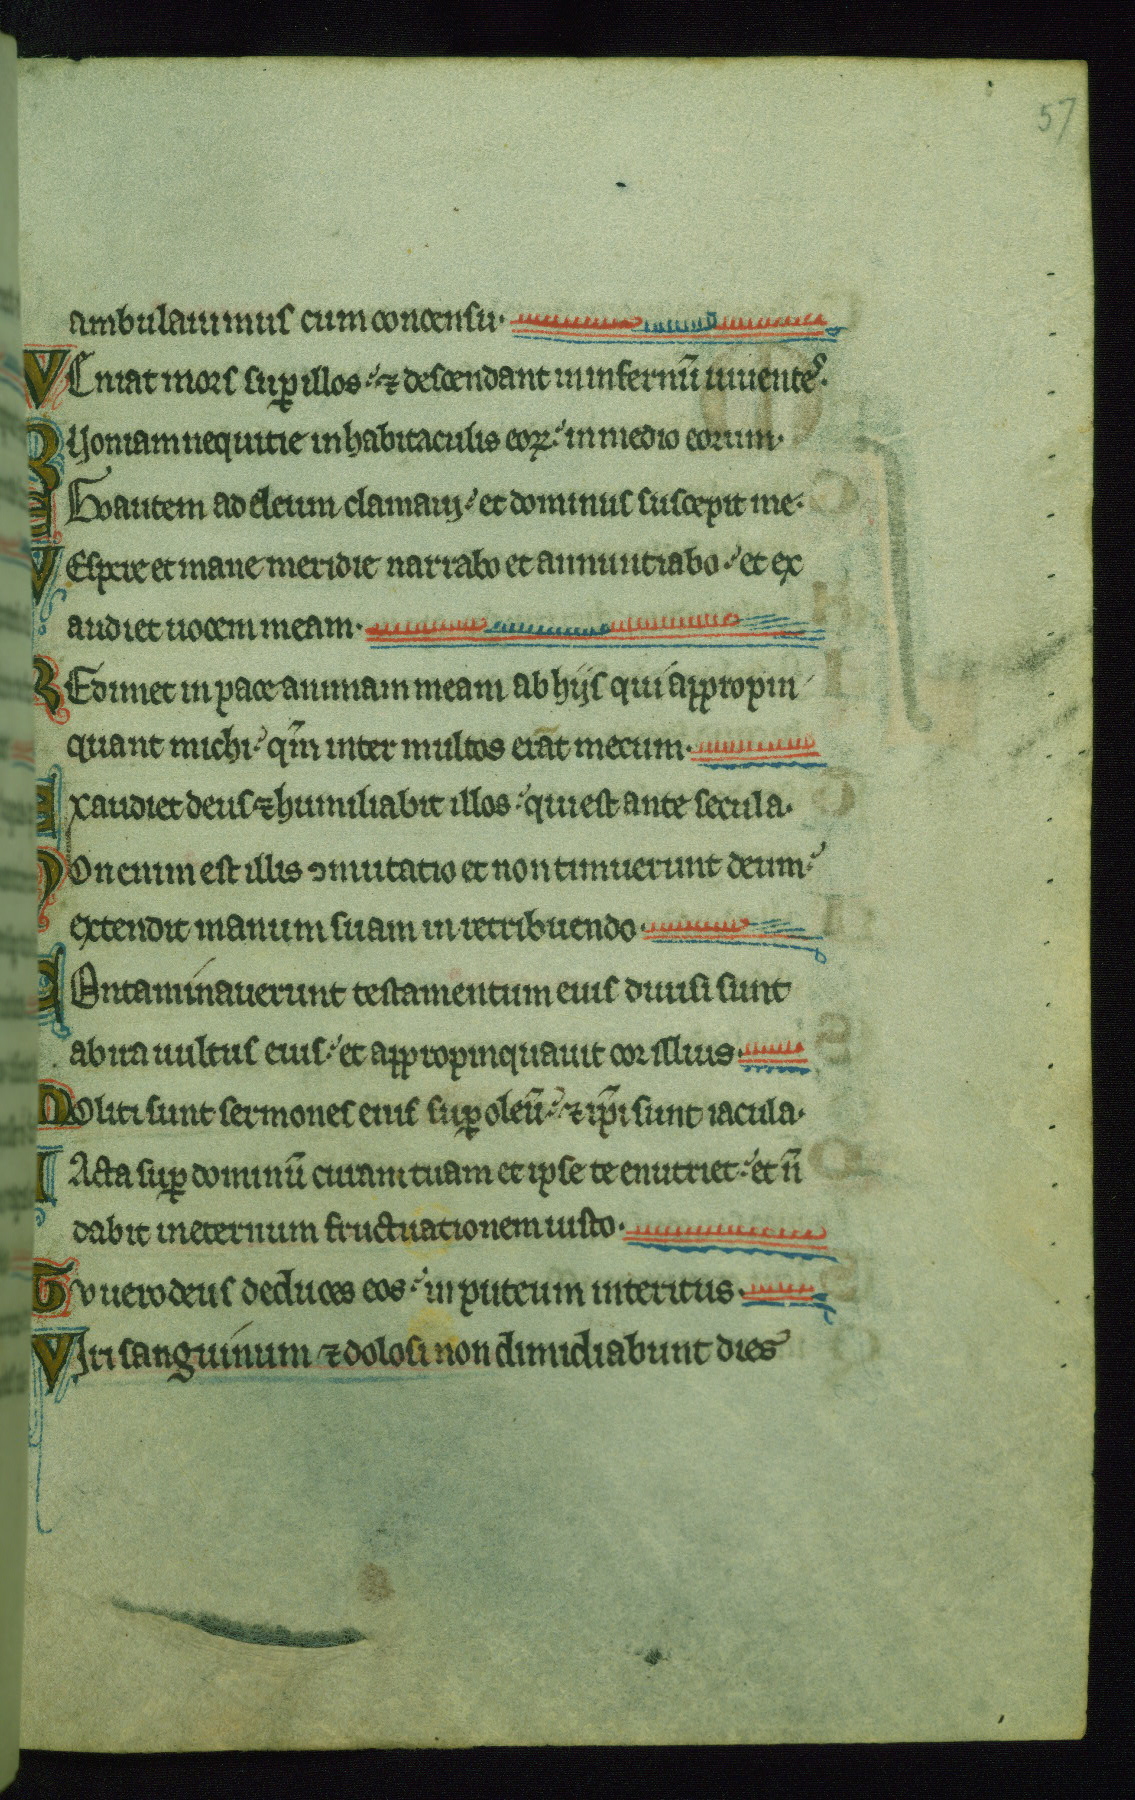 57
ambulauimus cum concensu·
VEniat mors sup̲ illos·᷾ ⁊ descendant in infernū uiuentes·
QVoniam nequitie in habitaculis eoꝝ·᷾ in medio eorum·
EGo autem ad deum clamaui·᷾ et dominus suscepit me·
VEspere et mane meridie narrabo et annuntiabo·᷾ et ex
audiet uocem meam·
REdimet in pace animam meam ab hijs qui appropin
quant michi·᷾ qm̄ inter multos erāt mecum·
Exaudiet deus ⁊ humiliabit illos·᷾ qui est ante secula·
NOn enim est illis ꝯmutatio et non timuerunt deum·᷾
extendit manum suam in retribuendo·
COntaminauerunt testamentum eius diuisi sunt
ab ira uultus eius·᷾ et appropinquauit cor illius·
MOliti sunt sermones eius suꝑ oleū·᷾ ⁊ ip̄i sunt iacula·
IActa suꝑ dominū curam tuam et ipse te enutriet·᷾ et n̄
dabit in eternum fructuationem iusto·
TV uero deus deduces eos·᷾ in puteum interitus·
VIri sanguinum ⁊ dolosi non dimidiabunt dies